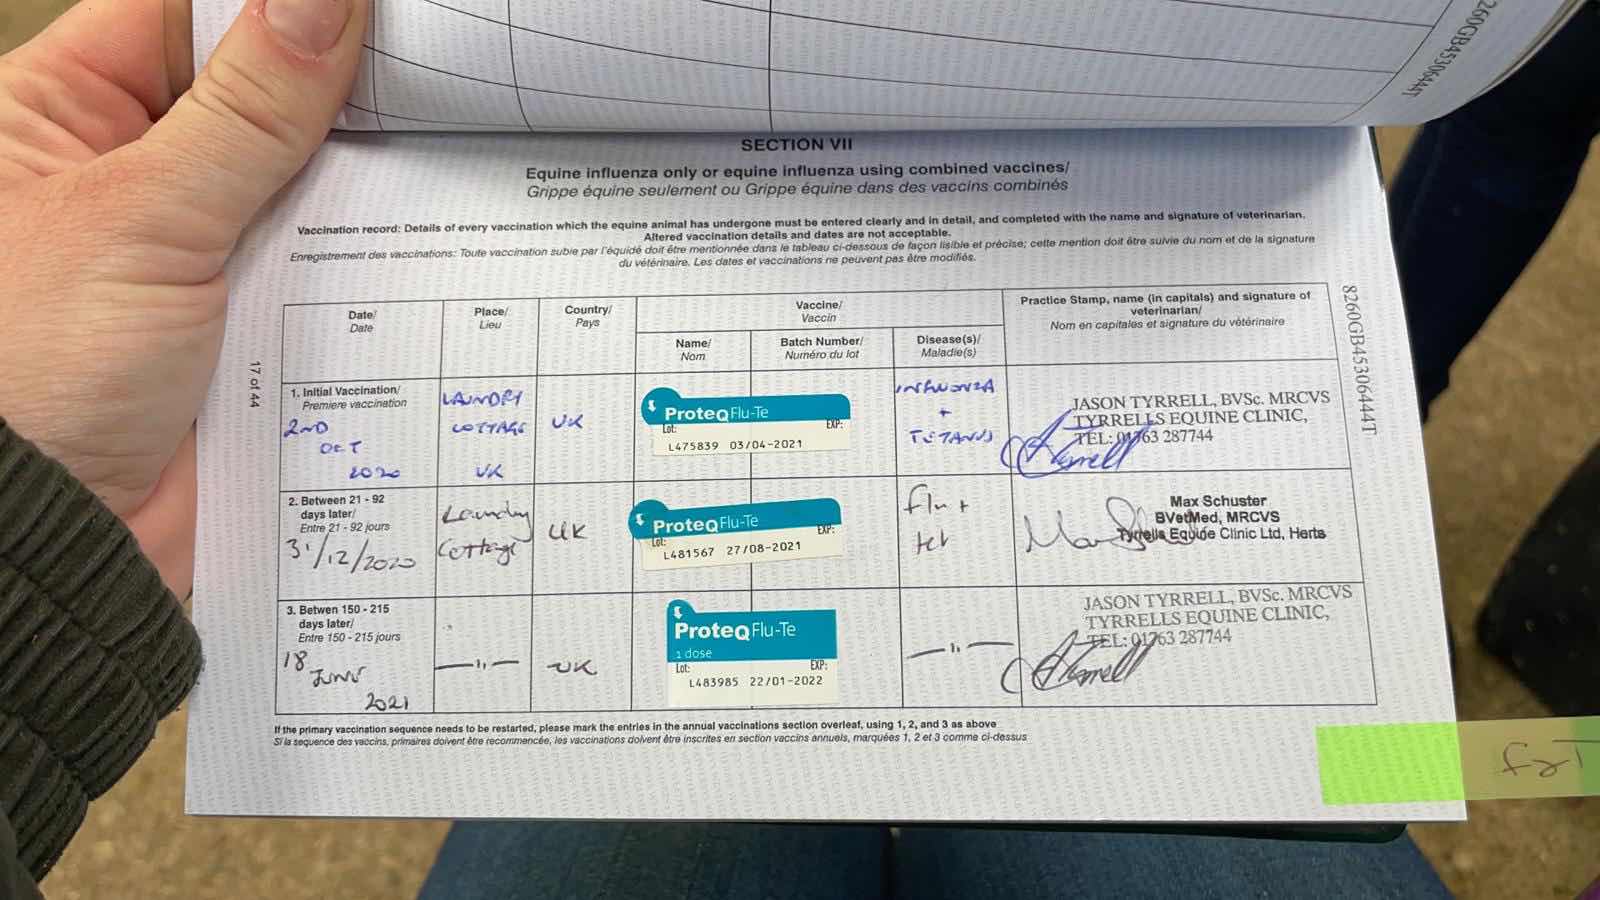 260GB45306444T
SECTION VII
Equine influenza only or equine influenza using combined vaccines/
Grippe équine seulement ou Grippe équine dans des vaccins combinés
Vaccination record: Details of every vaccination which the equine animal has undergone must be entered clearly and in detail, and completed with the name and signature of veterinarian.
Altered vaccination details and dates are not acceptable.
Enregistrement des vaccinations: Toute vaccination subie par l'équidé doit être mentionnée dans le tableau ci-dessous de façon lisible et précise; cette mention doit être suivie du nom et de la signature
du vétérinaire. Les dates et vaccinations ne peuvent pas être modifiés.
8260GB45306444T
17 of 44
Date/
Date
Place/
Lieu
Country/
Pays
Vaccine/
Vaccin
Name/
Nom
Batch Number/
Numéro du lot
Disease(s)/
Maladie(s)
Practice Stamp, name (in capitals) and signature of
veterinarian/
Nom en capitales et signature du vétérinaire
1. Initial Vaccination/
Premiere vaccination
2ND
OCT
2020
LAUNDRY
COTTAGE
UK
UK
ProteqFlu-Te
Lot: EXP:
L475839 03/04-2021
INFLUENZA
+
TETANUS
JASON TYRRELL, BVSc. MRCVS
TYRRELLS EQUINE CLINIC,
TEL: 01763 287744
2. Between 21 - 92
days later/
Entre 21 - 92 jours
31/12/2020
Laundry
Cottage
UK
ProteqFlu-Te
Lot: EXP:
L481567 27/08-2021
flu +
tet
Max Schuster
BVetMed, MRCVS
Tyrrells Equine Clinic Ltd, Herts
3. Betwen 150 - 215
days later/
Entre 150 - 215 jours
18
JUNE
2021
—"—
UK
ProteqFlu-Te
1 dose
Lot: EXP:
L483985 22/01-2022
—"—
JASON TYRRELL, BVSc. MRCVS
TYRRELLS EQUINE CLINIC,
TEL: 01763 287744
If the primary vaccination sequence needs to be restarted, please mark the entries in the annual vaccinations section overleaf, using 1, 2, and 3 as above
Si la sequence des vaccins, primaires doivent être recommencée, les vaccinations doivent être inscrites en section vaccins annuels, marquées 1, 2 et 3 comme ci-dessus